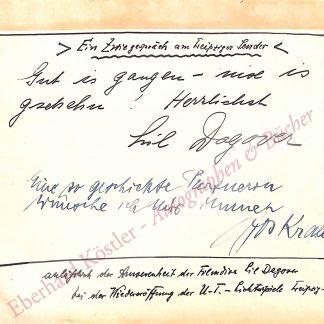 > Ein Zwiegespräch am Leipziger Sender <
Gut is gangen – nix is
gschehn! Herrlichst
Lil Dagover
Eine so geschickte Partnerin
wünsche ich mir immer
anläßlich der Anwesenheit der Fremdire Lil Dagover
bei der Wiedereröffnung der U.-T.-Lichtspiele Leipzig.
Eberhard Köstler - Autographen & Bücher